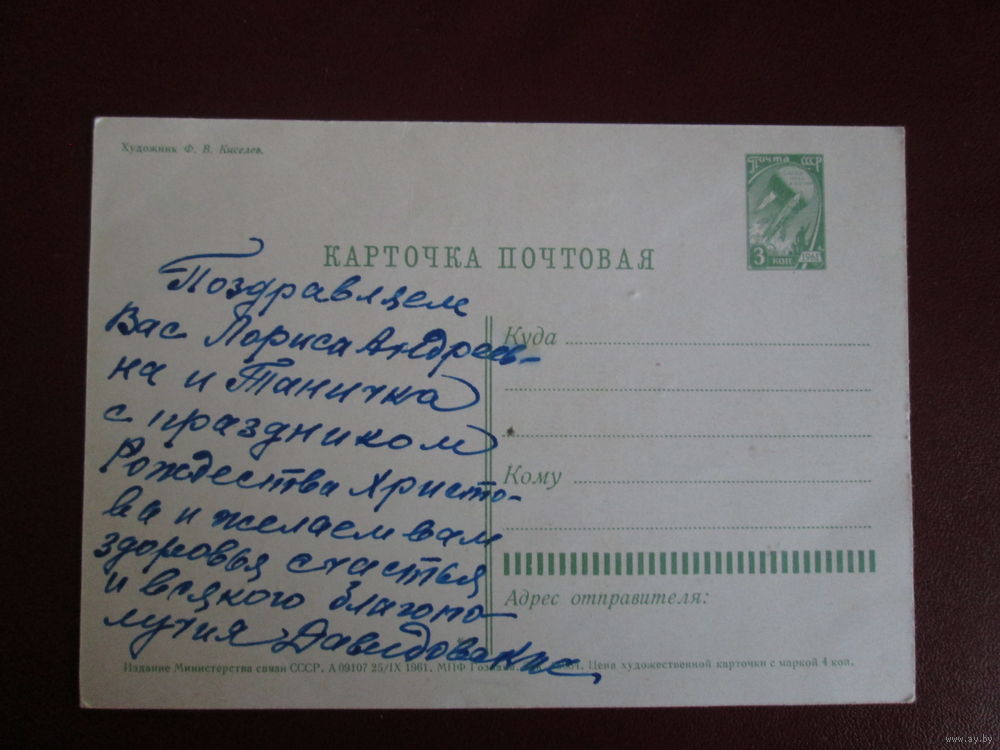 Художник Ф. В. Киселев.
Почта СССР
3 коп
1961
КАРТОЧКА ПОЧТОВАЯ
Поздравляем
Вас Лориса Андреев-
на и Таничка
с праздником
Рождества Христо-
ва и желаем вам
здоровья счастья
и всякого благопо-
лучия Давидова
Куда
Кому
Адрес отправителя:
Издание Министерства связи СССР. А 09107 25/IX 1961. МПФ Гознака. Цена художественной карточки с маркой 4 коп.
www.ay.by